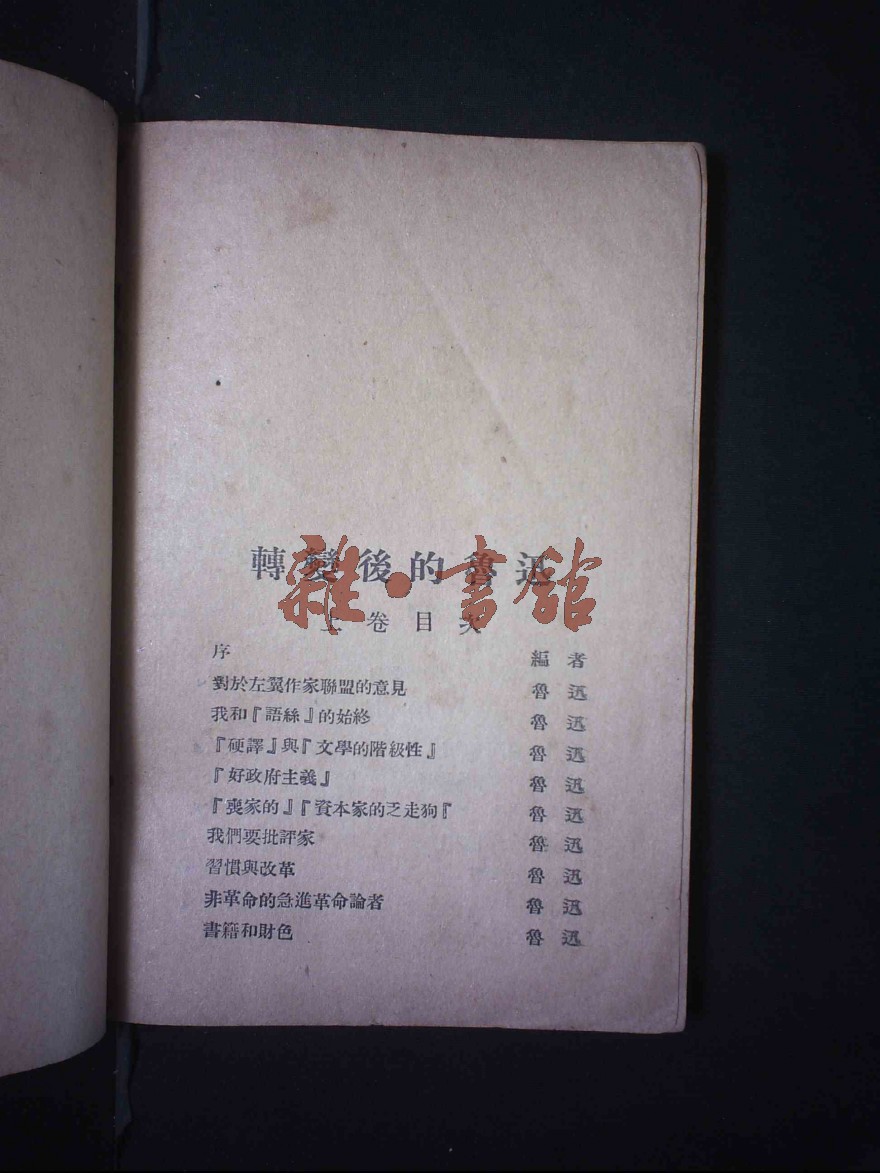 轉變後的魯迅
雜·書館
上卷目次
序 編者
對於左翼作家聯盟的意見 魯迅
我和『語絲』的始終 魯迅
『硬譯』與『文學的階級性』 魯迅
『好政府主義』 魯迅
『喪家的』『資本家的乏走狗』 魯迅
我們要批評家 魯迅
習慣與改革 魯迅
非革命的急進革命論者 魯迅
書籍和財色 魯迅